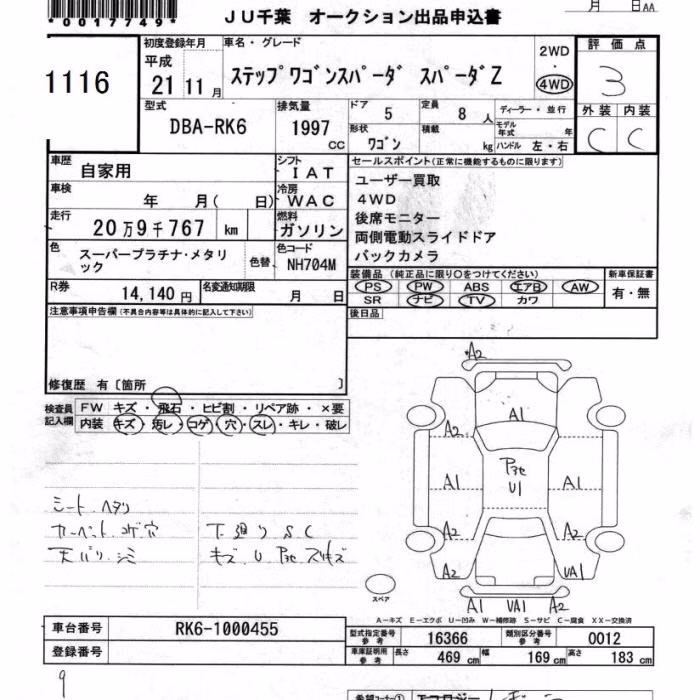 *0017749*
月 日AA
JU千葉 オークション出品申込書
1116
初度登録年月
平成
21 11月
車名・グレード
ステップワゴンスパーダ スパーダZ
2WD
・
4WD
評価点
3
型式
DBA-RK6
排気量
1997 CC
ドア 5
定員 8 人
ディーラー・並行
モデル年式 年
形状 ワゴン
積載 kg
ハンドル 左・右
外装 内装
C C
車歴 自家用
シフト IAT
車検 年 月( 日)
冷房 WAC
走行 20万9千767 km
燃料 ガソリン
色 スーパープラチナ・メタリック
色替
色コード NH704M
R券 14,140円
名変通知期限 月 日
セールスポイント(正常に機能するものに限ります)
ユーザー買取
4WD
後席モニター
両側電動スライドドア
バックカメラ
装備品(純正品に限り○をつけてください)
新車保証書
PS PW ABS エアB AW
SR ナビ TV カワ
有・無
後日品
注意事項申告欄(不具合内容等は具体的に記入して下さい)
修復歴 有〔箇所 〕
検査員記入欄
FW キズ・飛石・ヒビ割・リペア跡・×要
内装 キズ・汚レ・コゲ・穴・スレ・キレ・破レ
シート ヘタリ
カーペット コゲ穴
天バリ シミ
下廻り SC
キズ U
A2
A1
A2
A2
A1
U1
A1
A2
A2
A2
UA1
A1 UA1 A2
スペア
A-キズ E-エクボ U-凹み W-補修跡 S-サビ C-腐食 XX-交換済
車台番号 RK6-1000455
登録番号
型式指定番号参考 16366
類別区分番号参考 0012
車庫証明用参考 長さ 469 cm 幅 169 cm 高さ 183 cm
9
希望コーナー①